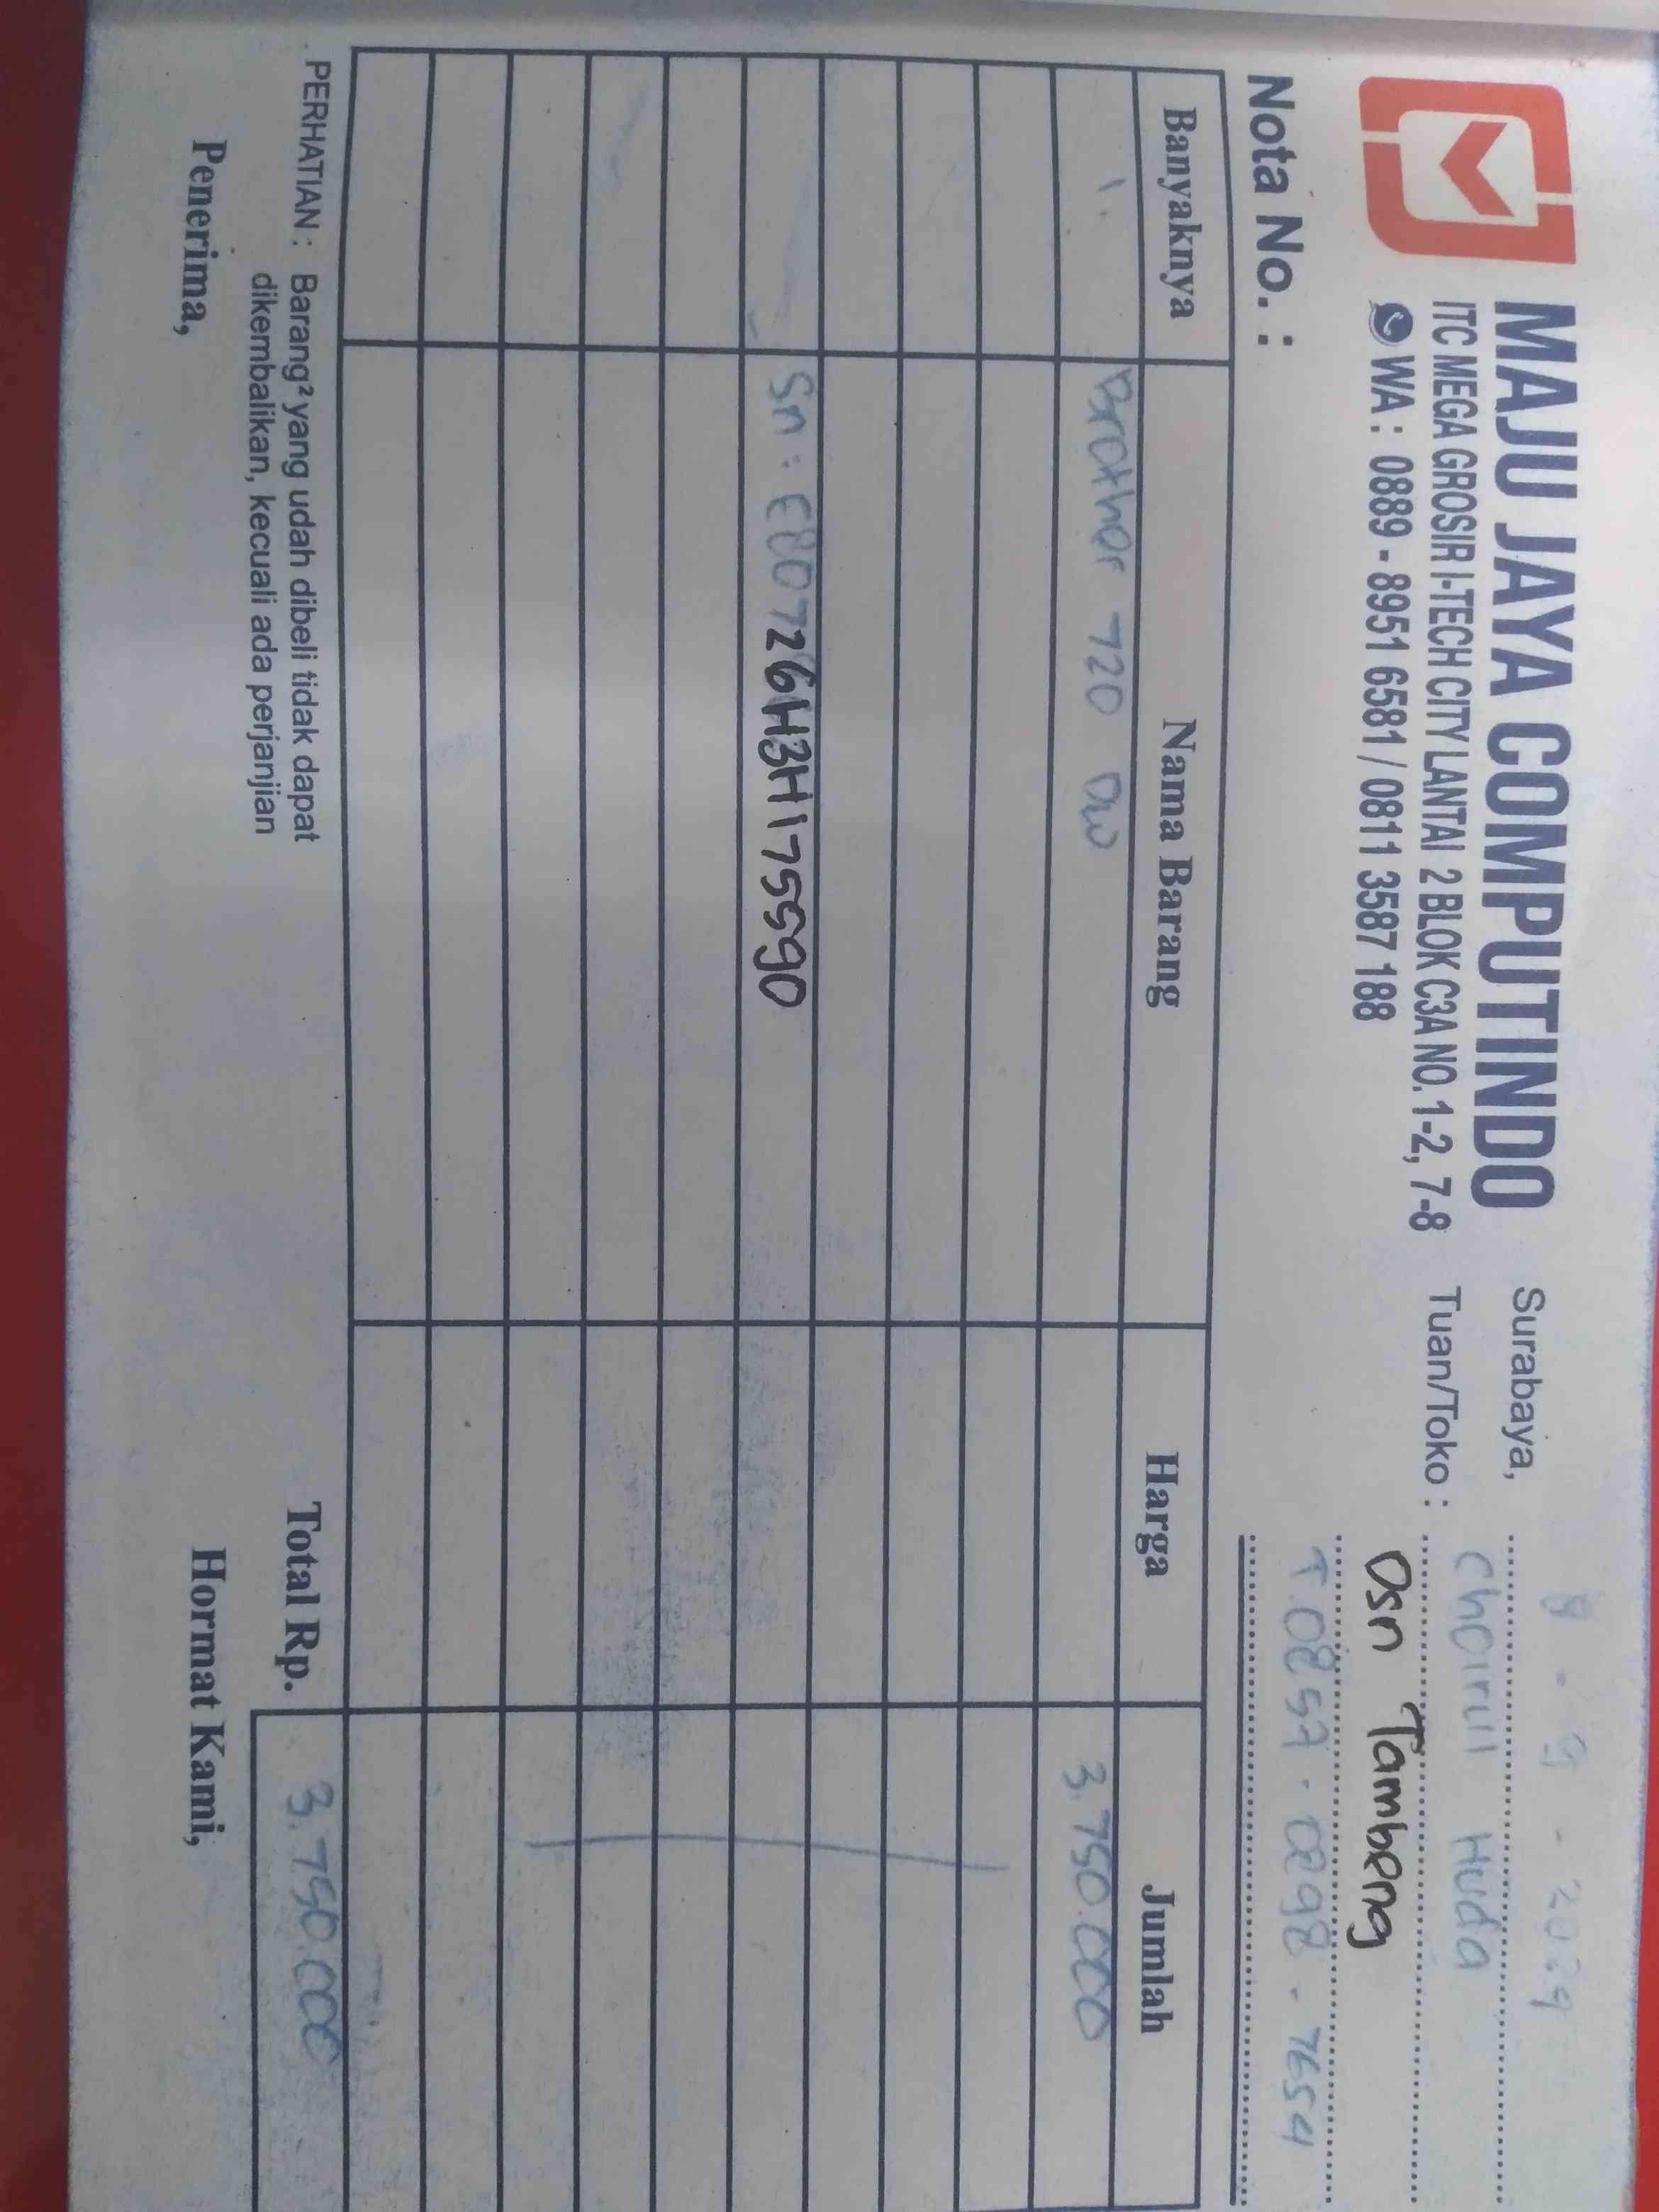 MAJU JAYA COMPUTINDO
ITC MEGA GROSIR I-TECH CITY LANTAI 2 BLOK C3A NO. 1-2, 7-8
WA : 0889 - 8951 6581 / 0811 3587 188
Surabaya, 8 - 9 - 2024
Tuan/Toko : Choirul Huda
Dsn Tambeng
T. 0857 - 0898 - 7654
Nota No. :
Banyaknya Nama Barang Harga Jumlah
1. Brother 720 DW 3.750.000
Sn : E80726H3H175590
Total Rp. 3.750.000
PERHATIAN : Barang² yang udah dibeli tidak dapat
dikembalikan, kecuali ada perjanjian
Penerima, Hormat Kami,